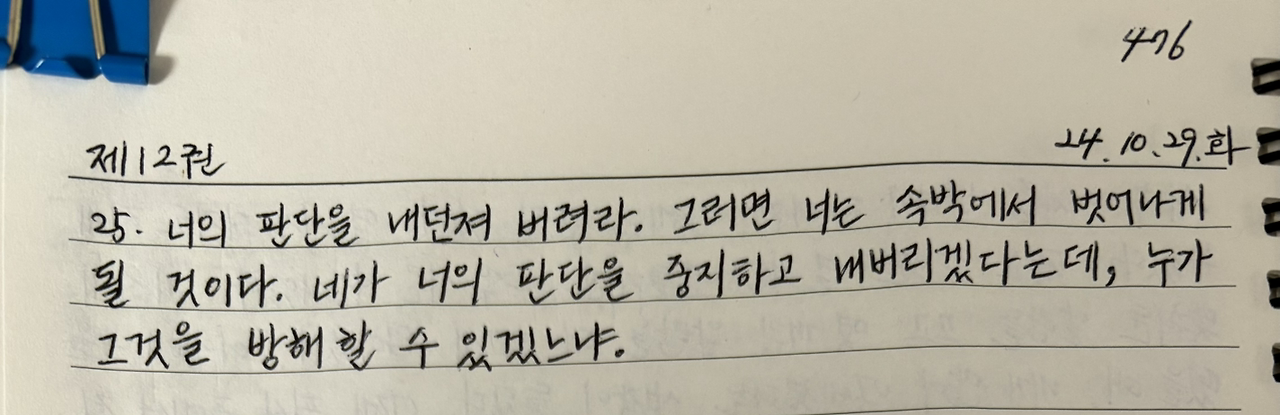 476
제12권
24.10.29.화
25. 너의 판단을 내던져 버려라. 그러면 너는 속박에서 벗어나게
될 것이다. 네가 너의 판단을 중지하고 내버리겠다는데, 누가
그것을 방해할 수 있겠느냐.